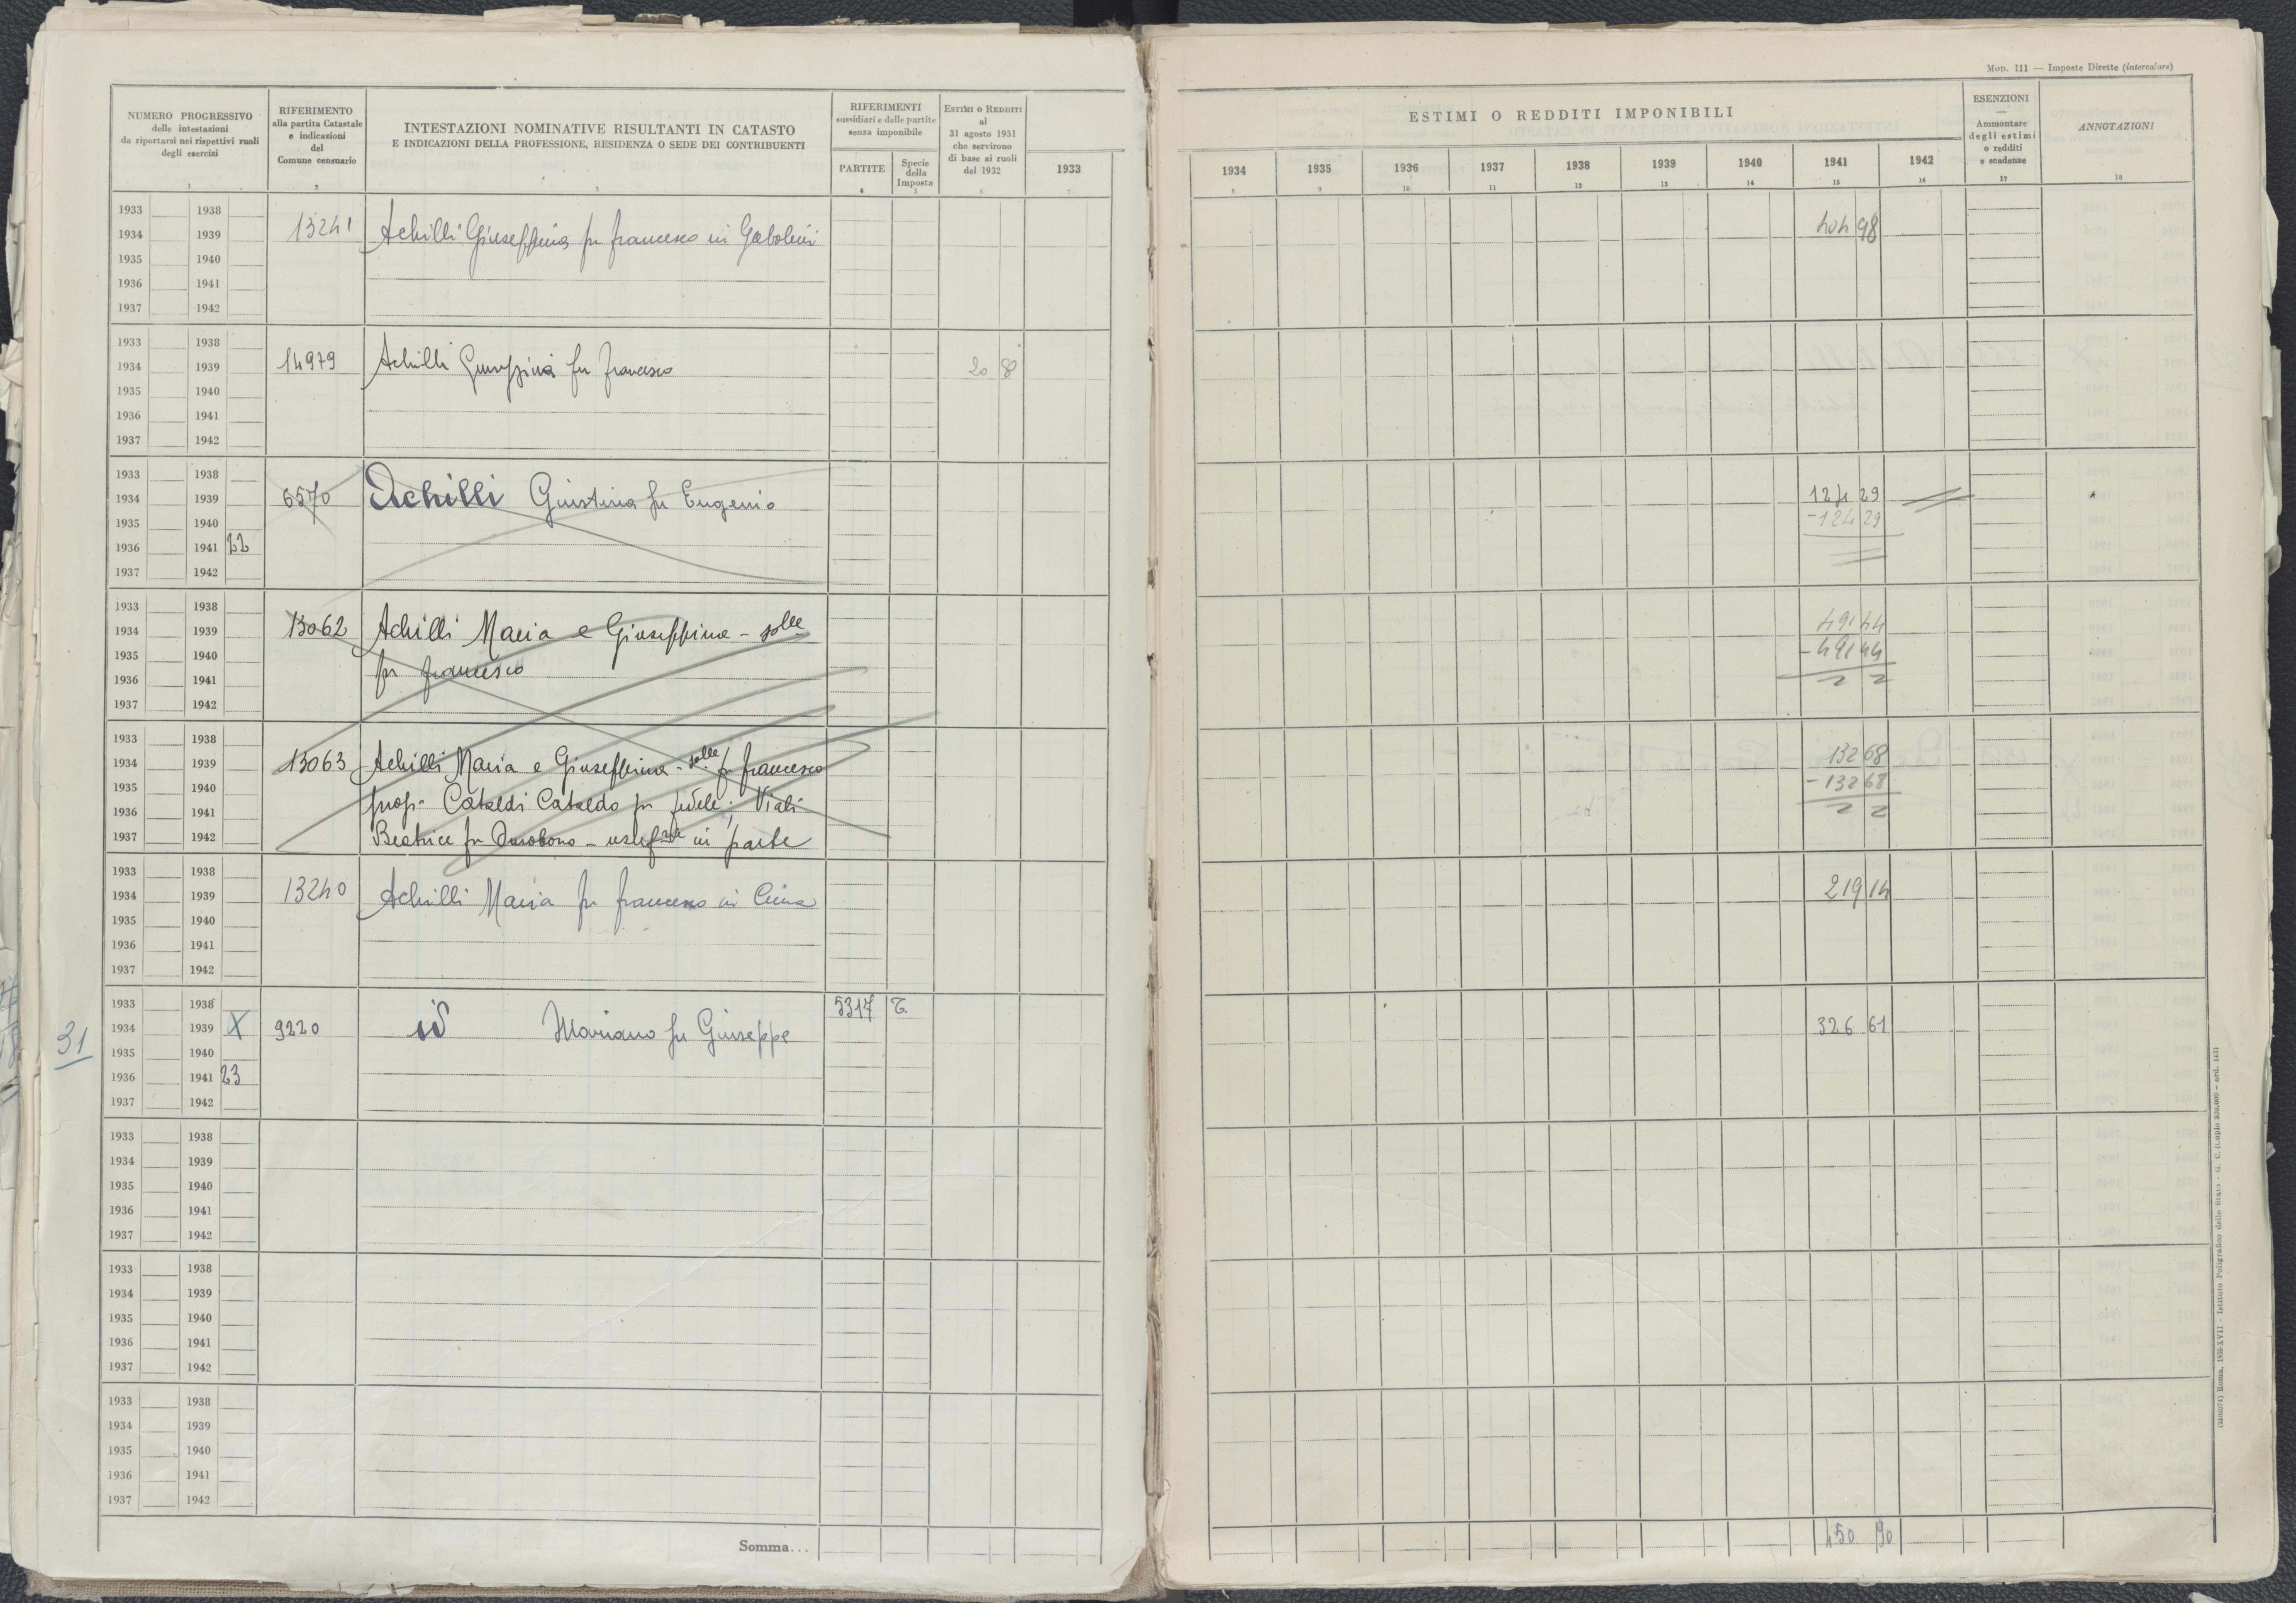 Mod. 111 — Imposte Dirette (intercalare)
NUMERO PROGRESSIVO
delle intestazioni
da riportarsi nei rispettivi ruoli
degli esercizi
1
RIFERIMENTO
alla partita Catastale
e indicazioni
del
Comune censuario
2
INTESTAZIONI NOMINATIVE RISULTANTI IN CATASTO
E INDICAZIONI DELLA PROFESSIONE, RESIDENZA O SEDE DEI CONTRIBUENTI
3
RIFERIMENTI
sussidiari e delle partite
senza imponibile
PARTITE
4
Specie
della
Imposta
5
ESTIMI O REDDITI
al
31 agosto 1931
che servirono
di base ai ruoli
del 1932
6
1933
7
ESTIMI O REDDITI IMPONIBILI
1934 1935 1936 1937 1938 1939 1940 1941 1942
8 9 10 11 12 13 14 15 16
ESENZIONI
—
Ammontare
degli estimi
o redditi
e scadenze
17
ANNOTAZIONI
18
1933 1938
1934 1939 13241 Achilli Giuseppina fu Francesco in Gabolini 404 98
1935 1940
1936 1941
1937 1942
1933 1938
1934 1939 14979 Achilli Giuseppina fu Francesco 20 8
1935 1940
1936 1941
1937 1942
1933 1938
1934 1939 6570 Achilli Giustina fu Eugenio 124 29
1935 1940 -124 29
1936 1941 22
1937 1942
1933 1938
1934 1939 13062 Achilli Maria e Giuseppina - solle 491 44
1935 1940 fu Francesco -491 44
1936 1941
1937 1942
1933 1938
1934 1939 13063 Achilli Maria e Giuseppina - solle fu Francesco 132 68
1935 1940 prop. Cataldi Cataldo fu Fedele; Viali -132 68
1936 1941
1937 1942 Beatrice fu Omobono - in parte
1933 1938
1934 1939 13240 Achilli Maria fu Francesco in Cima 219 14
1935 1940
1936 1941
1937 1942
1933 1938 5317 T.
1934 1939 X 9220 id Mariano fu Giuseppe 326 61
31
1935 1940
1936 1941 23
1937 1942
1933 1938
1934 1939
1935 1940
1936 1941
1937 1942
1933 1938
1934 1939
1935 1940
1936 1941
1937 1942
1933 1938
1934 1939
1935 1940
1936 1941
1937 1942
Somma... 450 90